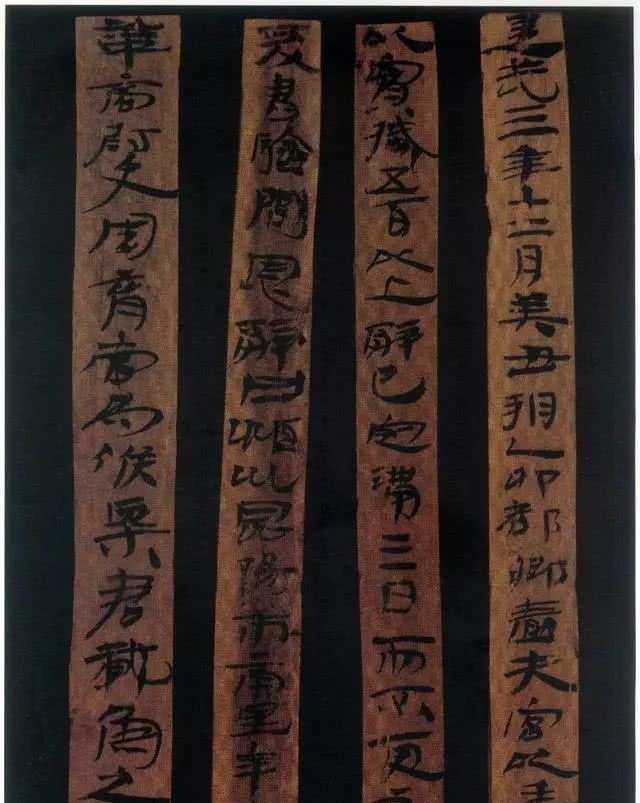 建武三年十二月癸丑朔乙卯都鄉嗇夫宮以
以實臧五百以上辭已定滿三日而不更
爰書驗問恩辭曰潁川昆陽市南里年
華商尉史周育當為候粟君載魚之